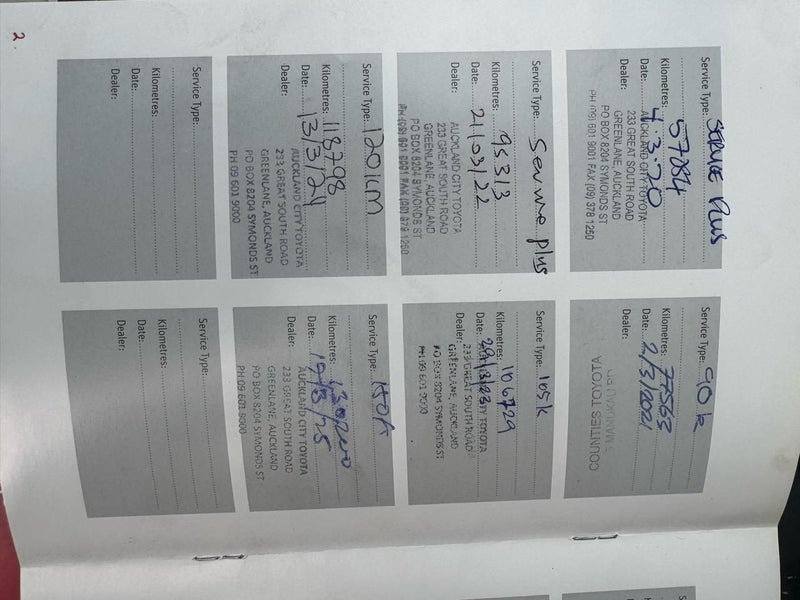 2
Service Type: SERVICE PLUS
Kilometres: 57884
Date: 4.3.20
Dealer:
AUCKLAND CITY TOYOTA
233 GREAT SOUTH ROAD
GREENLANE, AUCKLAND
PO BOX 8204 SYMONDS ST
PH (09) 601 9001 FAX (09) 378 1250
Service Type: 90k
Kilometres: 77563
Date: 2/3/2021
Dealer:
MANUKAU RD
COUNTIES TOYOTA
Service Type: Service plus
Kilometres: 95313
Date: 21/03/22
Dealer:
AUCKLAND CITY TOYOTA
233 GREAT SOUTH ROAD
GREENLANE, AUCKLAND
PO BOX 8204 SYMONDS ST
PH (09) 601 9001 FAX (09) 378 1250
Service Type: 105k
Kilometres: 106729
Date: 29/3/23
Dealer:
CITY TOYOTA
233 GREAT SOUTH ROAD
GREENLANE, AUCKLAND
PO BOX 8204 SYMONDS ST
PH 09 601 9000
Service Type: 120km
Kilometres: 118798
Date: 13/3/24
Dealer:
AUCKLAND CITY TOYOTA
233 GREAT SOUTH ROAD
GREENLANE, AUCKLAND
PO BOX 8204 SYMONDS ST
PH 09 601 9000
Service Type:
Kilometres:
Date:
Dealer:
AUCKLAND CITY TOYOTA
233 GREAT SOUTH ROAD
GREENLANE, AUCKLAND
PO BOX 8204 SYMONDS ST
PH 09 601 9000
Service Type:
Kilometres:
Date:
Dealer:
Service Type:
Kilometres:
Date:
Dealer: